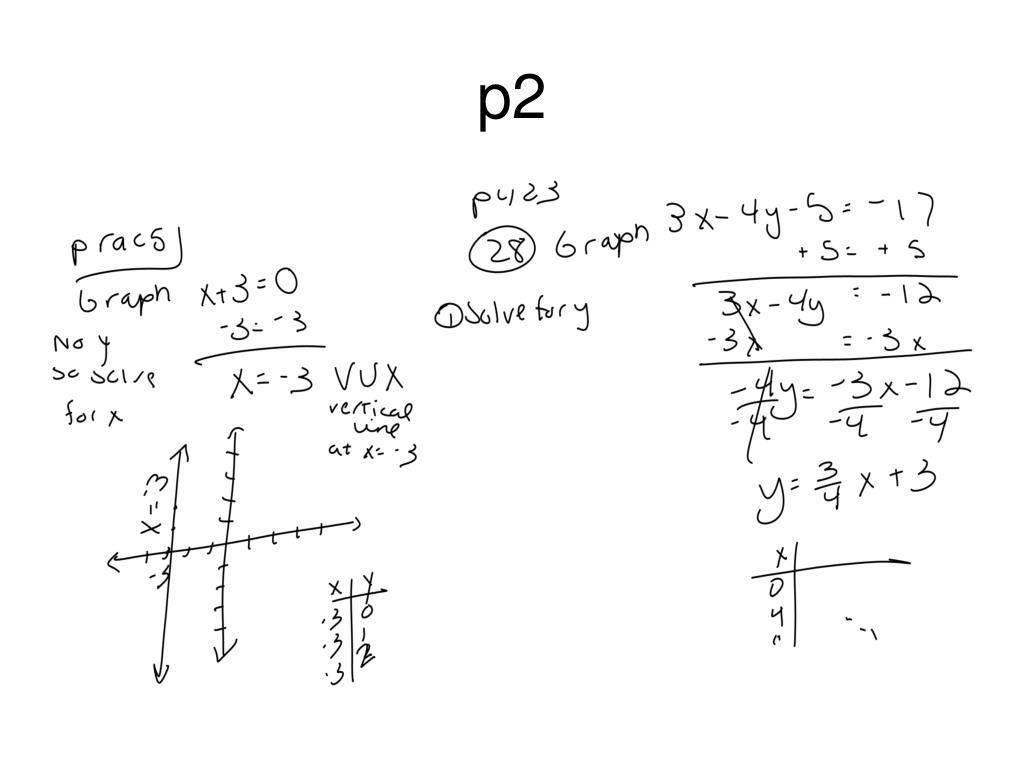 p2
prac5
Graph x+3=0
-3=-3
No y
so solve
for x
x=-3 VUX
vertical
line
at x=-3
x=-3
-3
x y
-3 0
-3 1
-3 2
p423
28 Graph 3x-4y-5=-17
+5=+5
① Solve for y
3x-4y = -12
-3x = -3x
-4y = -3x-12
-4 -4 -4
y = 3/4 x + 3
x
0
4